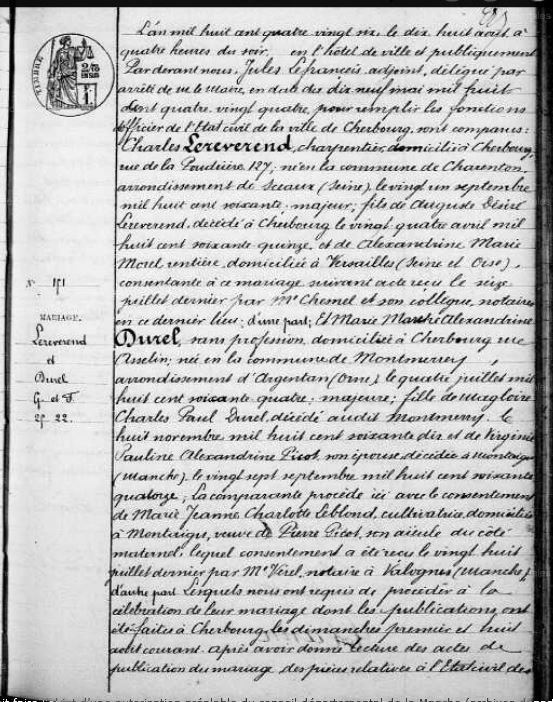 L'an mil huit cent quatre vingt six, le dix huit août, à
quatre heures du soir, en l'hôtel de ville et publiquement
Par devant nous, Jules Lefrançois, adjoint, délégué par
arrêté de M. le Maire, en date du dix neuf mai mil huit
cent quatre vingt quatre, pour remplir les fonctions
d'officier de l'Etat civil de la ville de Cherbourg, sont comparus:
Charles Lereverend, charpentier, domicilié à Cherbourg,
rue de la Poudrière 127; né en la commune de Charenton,
arrondissement de Sceaux (Seine), le vingt un septembre
mil huit cent soixante, majeur; fils de Auguste Désiré
Lereverend, décédé à Cherbourg le vingt quatre avril mil
huit cent soixante quinze, et de Alexandrine Marie
Morel rentière, domiciliée à Versailles (Seine et Oise),
consentante à ce mariage suivant acte reçu le seize
juillet dernier par Me Chesnel et son collègue, notaires
en ce dernier lieu; d'une part; Et Marie Marthe Alexandrine
Durel, sans profession, domiciliée à Cherbourg rue
Asselin; née en la commune de Montmerrey,
arrondissement d'Argentan (Orne), le quatre juillet mil
huit cent soixante quatre; majeure; fille de Magloire
Charles Paul Durel, décédé audit Montmerrey le
huit novembre mil huit cent soixante dix et de Virginie
Pauline Alexandrine Picot, son épouse décédée à Montaigu
(Manche), le vingt sept septembre mil huit cent soixante
quatorze; la comparante procède ici avec le consentement
de Marie Jeanne Charlotte Leblond, cultivatrice, domiciliée
à Montaigu, veuve de Pierre Picot, son aïeule du côté
maternel, lequel consentement a été reçu le vingt huit
juillet dernier par Me Viel, notaire à Valognes (Manche),
d'autre part Lesquels nous ont requis de procéder à la
célébration de leur mariage dont les publications ont
été faites à Cherbourg, les dimanches premier et huit
août courant. Après avoir donné lecture des actes de
publication du mariage, des pièces relatives à l'Etat civil des
TIMBRE
N° 151
MARIAGE.
Lereverend
et
Durel
G. et F.
25 22.
d'une autorisation préalable du conseil départemental de la Manche (archives d